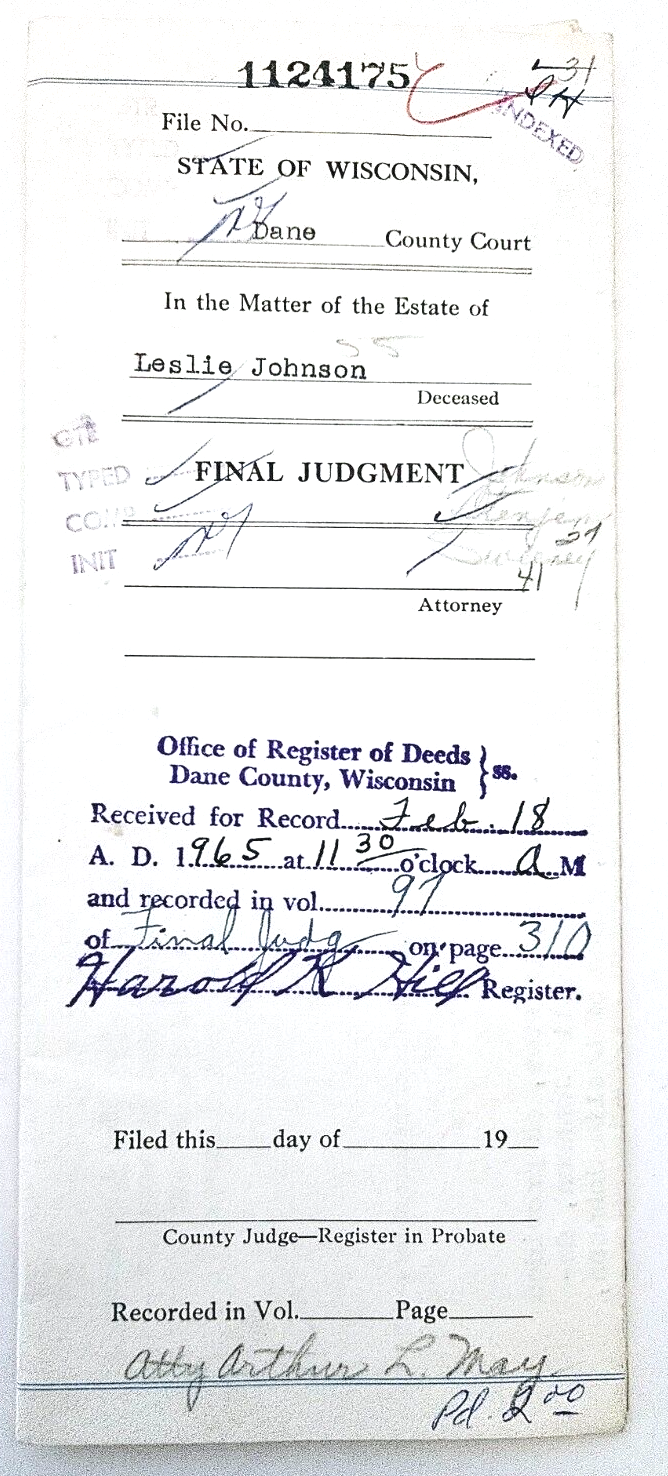 1124175
31
INDEXED
File No.
STATE OF WISCONSIN,
Dane County Court
In the Matter of the Estate of
55
Leslie Johnson
Deceased
FINAL JUDGMENT
TYPED
INIT
Johnson
41
Attorney
Office of Register of Deeds } ss.
Dane County, Wisconsin
Received for Record Feb. 18
A. D. 1965 at 11 30 o'clock A M
and recorded in vol. 97
of Final Judg on page 310
Harold K Hill Register.
Filed this day of 19
County Judge—Register in Probate
Recorded in Vol. Page
Atty Arthur L. May
Pd. 2 00